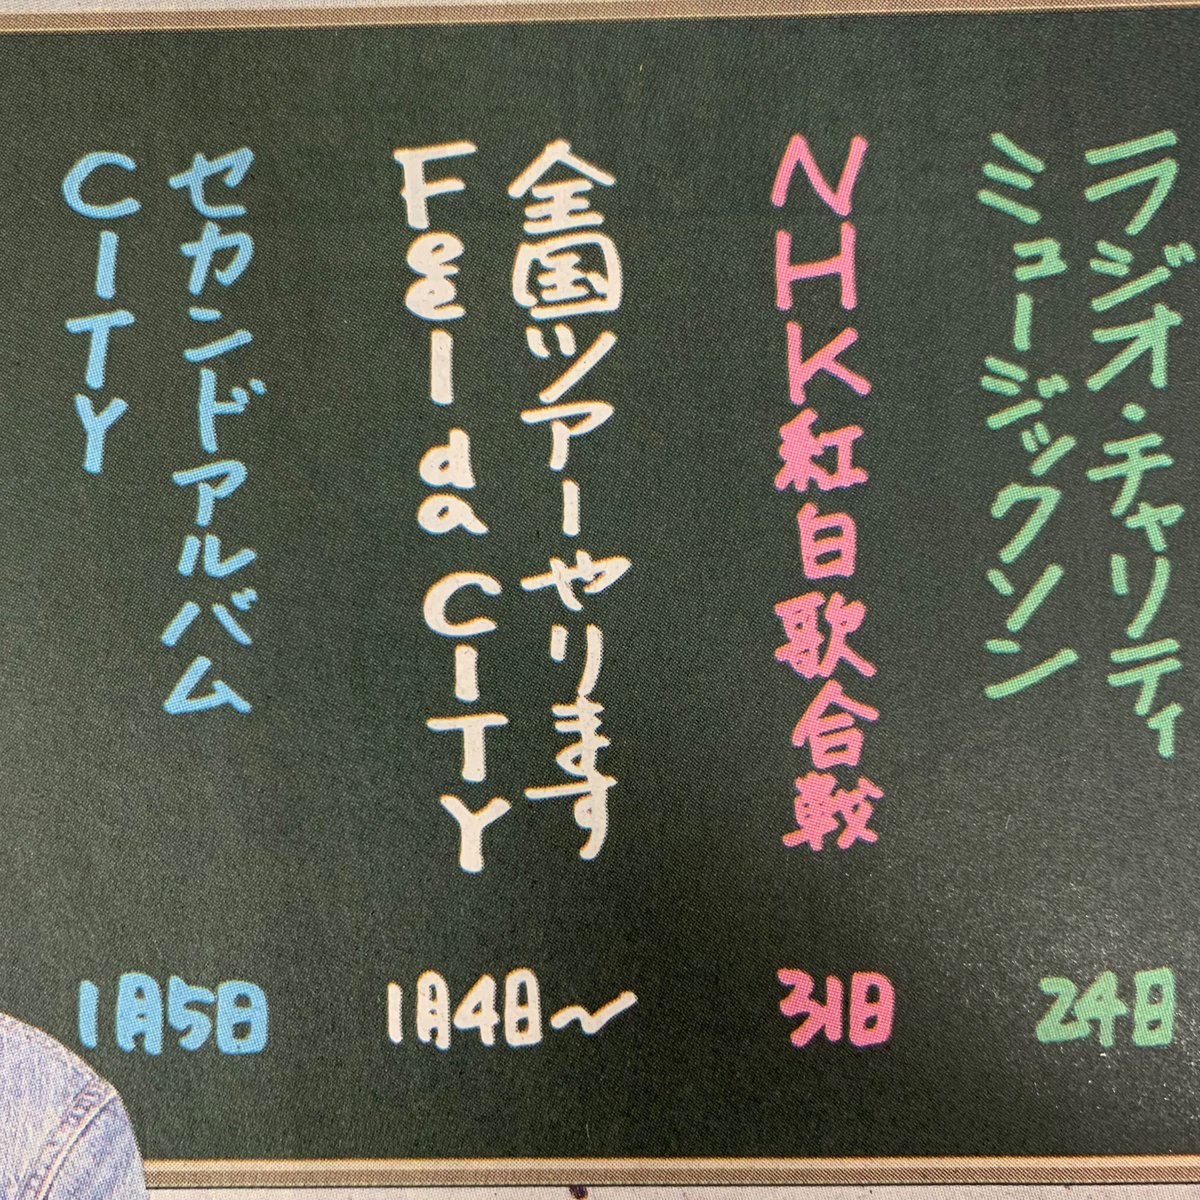 ラジオ・チャリティ
ミュージックソン
24日
NHK紅白歌合戦
31日
全国ツアーやります
Feel da CITY
1月4日〜
セカンドアルバム
CITY
1月5日